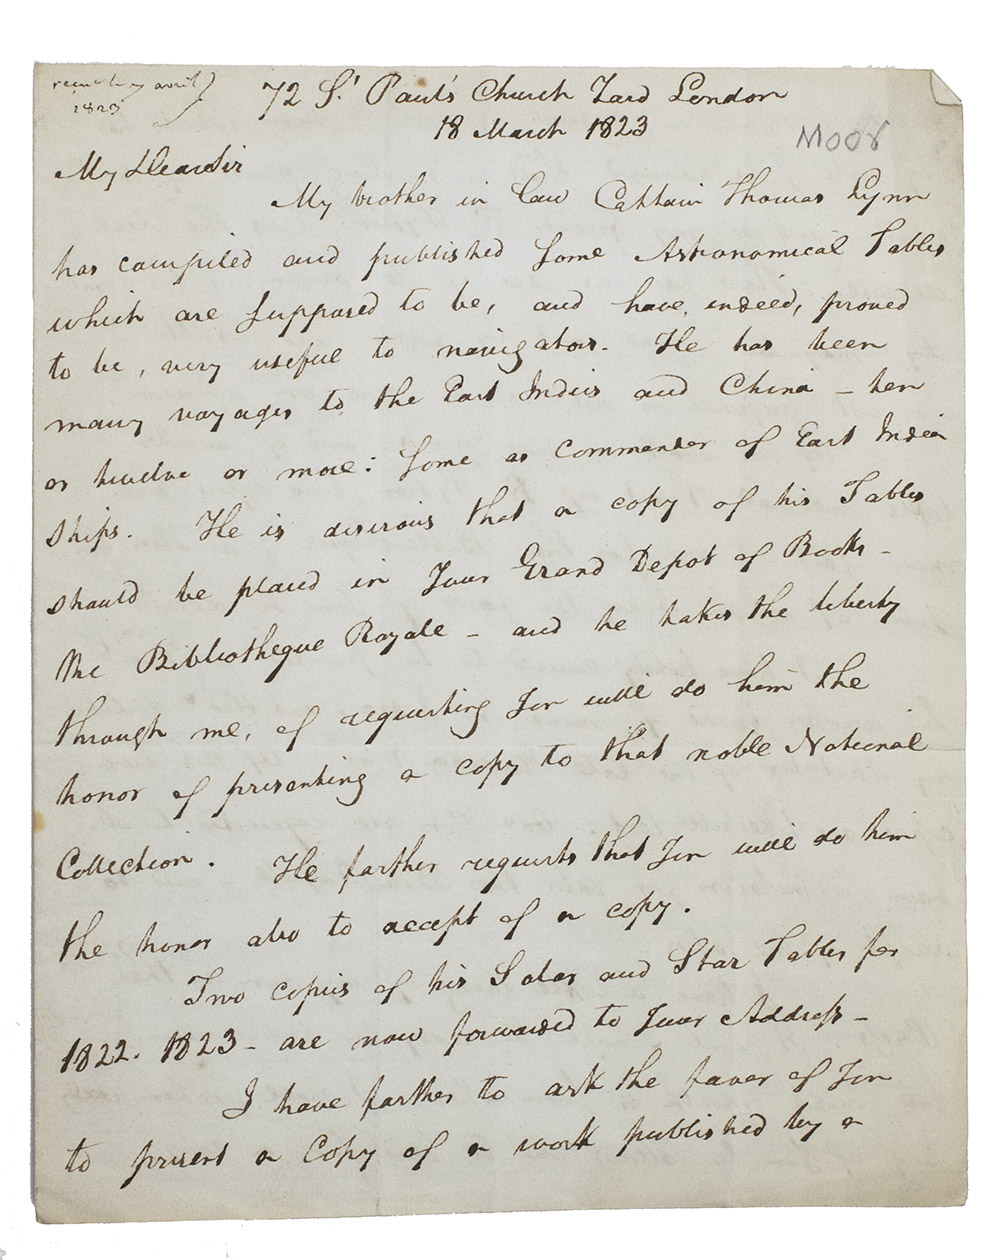 avril
1823
72 St Paul's Church Yard London
18 March 1823
Moor
My Dear Sir
My brother in law Captain Thomas Lynn
has compiled and published some Astronomical Tables
which are supposed to be, and have, indeed, proved
to be, very useful to navigators. He has been
many voyages to the East Indies and China – ten
or twelve or more: some as commander of East India
Ships. He is desirous that a copy of his Tables
should be placed in Your Grand Depot of Books –
the Bibliotheque Royale – and he takes the liberty
through me, of requesting You will do him the
honor of presenting a copy to that noble National
Collection. He farther requests that You will do him
the honor also to accept of a copy.
Two copies of his Solar and Star Tables for
1822. 1823 – are now forwarded to Your Address –
I have farther to ask the favor of You
to present a Copy of a work published by a